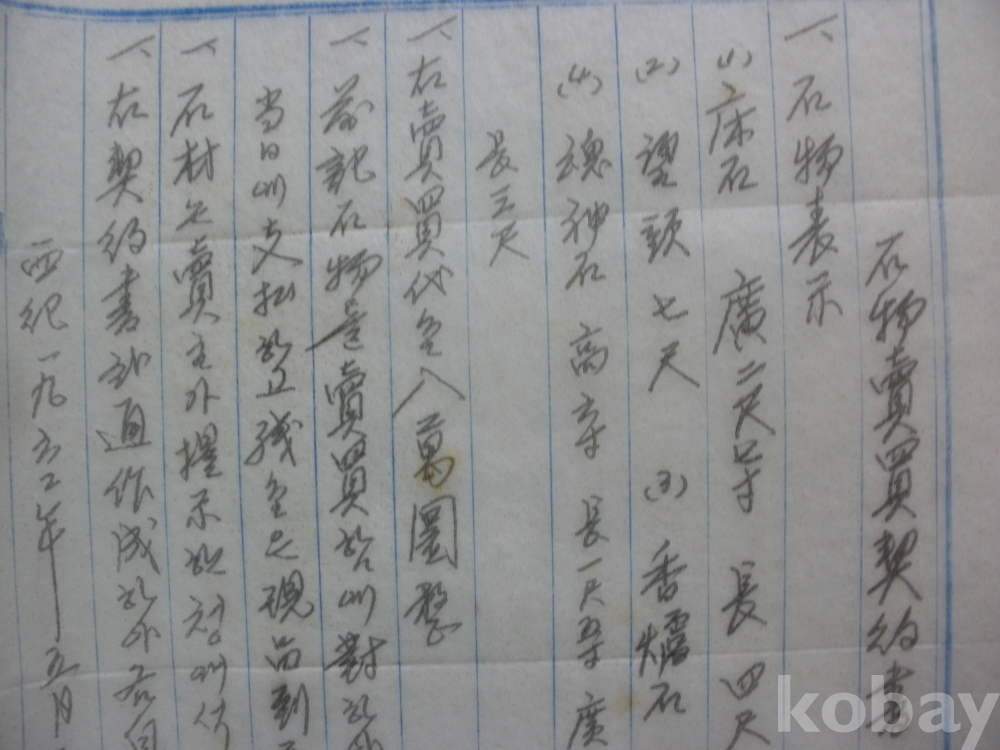 石物賣買契約書
一、石物表示
(1) 床石 廣二尺五寸 長 四尺
(2) 望頭 七尺 (3) 香爐石
(4) 魂神石 高 五寸 長一尺五寸 廣
長三尺
一、右賣買代金八萬圜整
一、前記石物을 賣買함에 對하야
当日에 支払하고 残金은 現品到
一、石材는 賣主外 提示한 청에
一、右契約書 弐通作成하야 各自
西紀一九五二年 五月
kobay